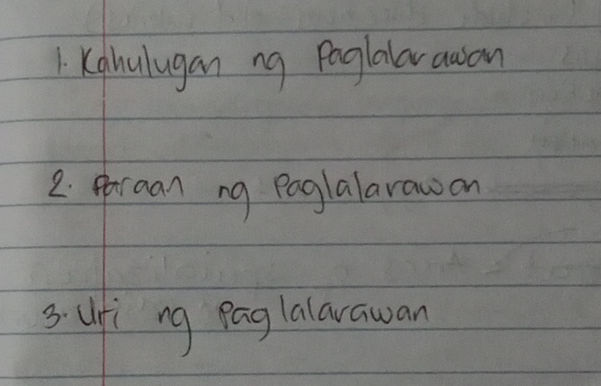 1. Kahulugan ng Paglalarawan
2. Paraan ng Paglalarawan
3. Uri ng Paglalarawan